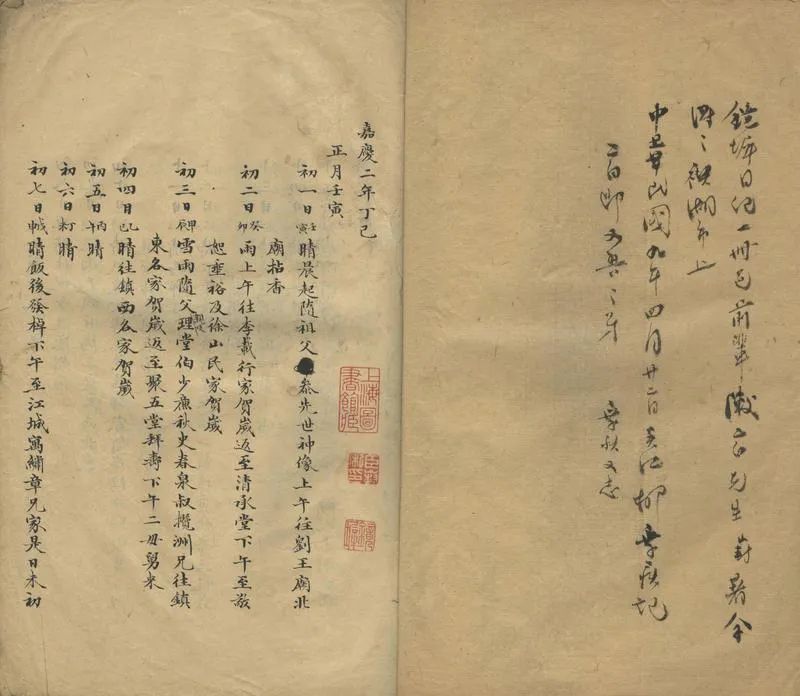 日記一冊邑前輩先生
得之禊湖市上
中華民國九年四月廿二日吳江柳棄疾記
棄疾又志
嘉慶二年丁巳
正月壬寅
初一日壬寅晴晨起隨祖父參先世神像上午往劉王廟北
廟拈香
初二日癸卯雨上午往李載行家賀歲返至清承堂下午至敬
恕裕及徐山民家賀歲
初三日甲辰雪雨隨父理堂伯少秋史春泉叔攬洲兄往鎮
東各家賀歲返至聚五堂拜壽下午二母舅來
初四日乙巳晴往鎮西各家賀歲
初五日丙午晴
初六日丁未晴
初七日戊申晴飯後發棹下午至江城寓繡章兄家是日木初
上海圖書館藏